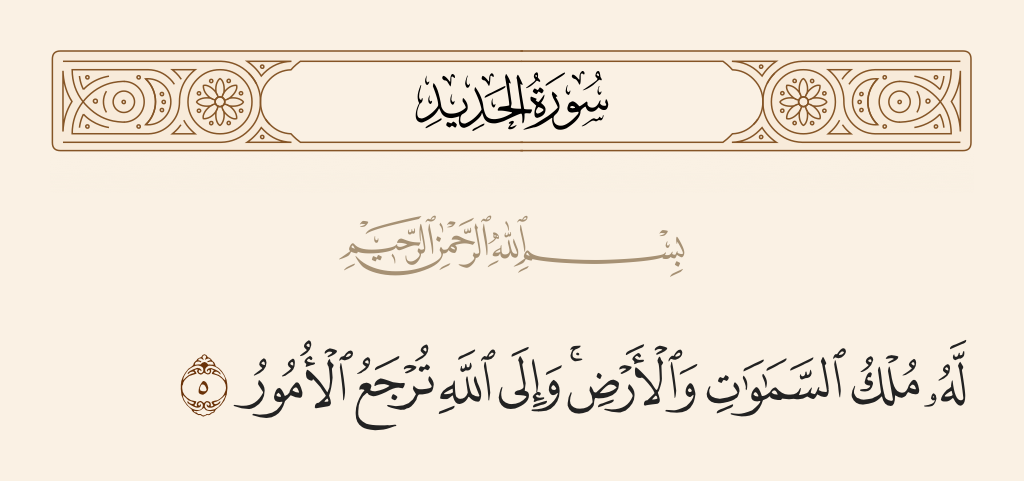 سُورَةُ الحَدِيدِ
بِسْمِ ٱللَّهِ ٱلرَّحْمَٰنِ ٱلرَّحِيمِ
لَّهُۥ مُلْكُ ٱلسَّمَٰوَٰتِ وَٱلْأَرْضِ ۚ وَإِلَى ٱللَّهِ تُرْجَعُ ٱلْأُمُورُ ٥